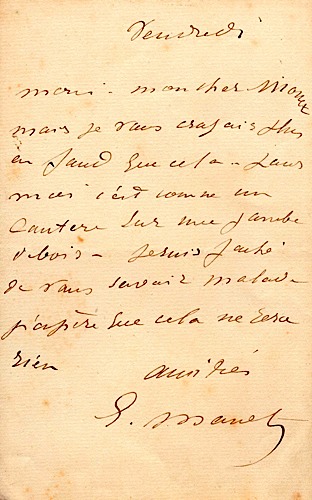 Vendredi
merci - mon cher
mais je vous croyais plus
en fond que cela - pour
moi c'est comme un
Cautère sur une jambe
de bois - je suis fâché
de vous savoir malade
j'espère que cela ne sera
rien
amitiés
E. Manet